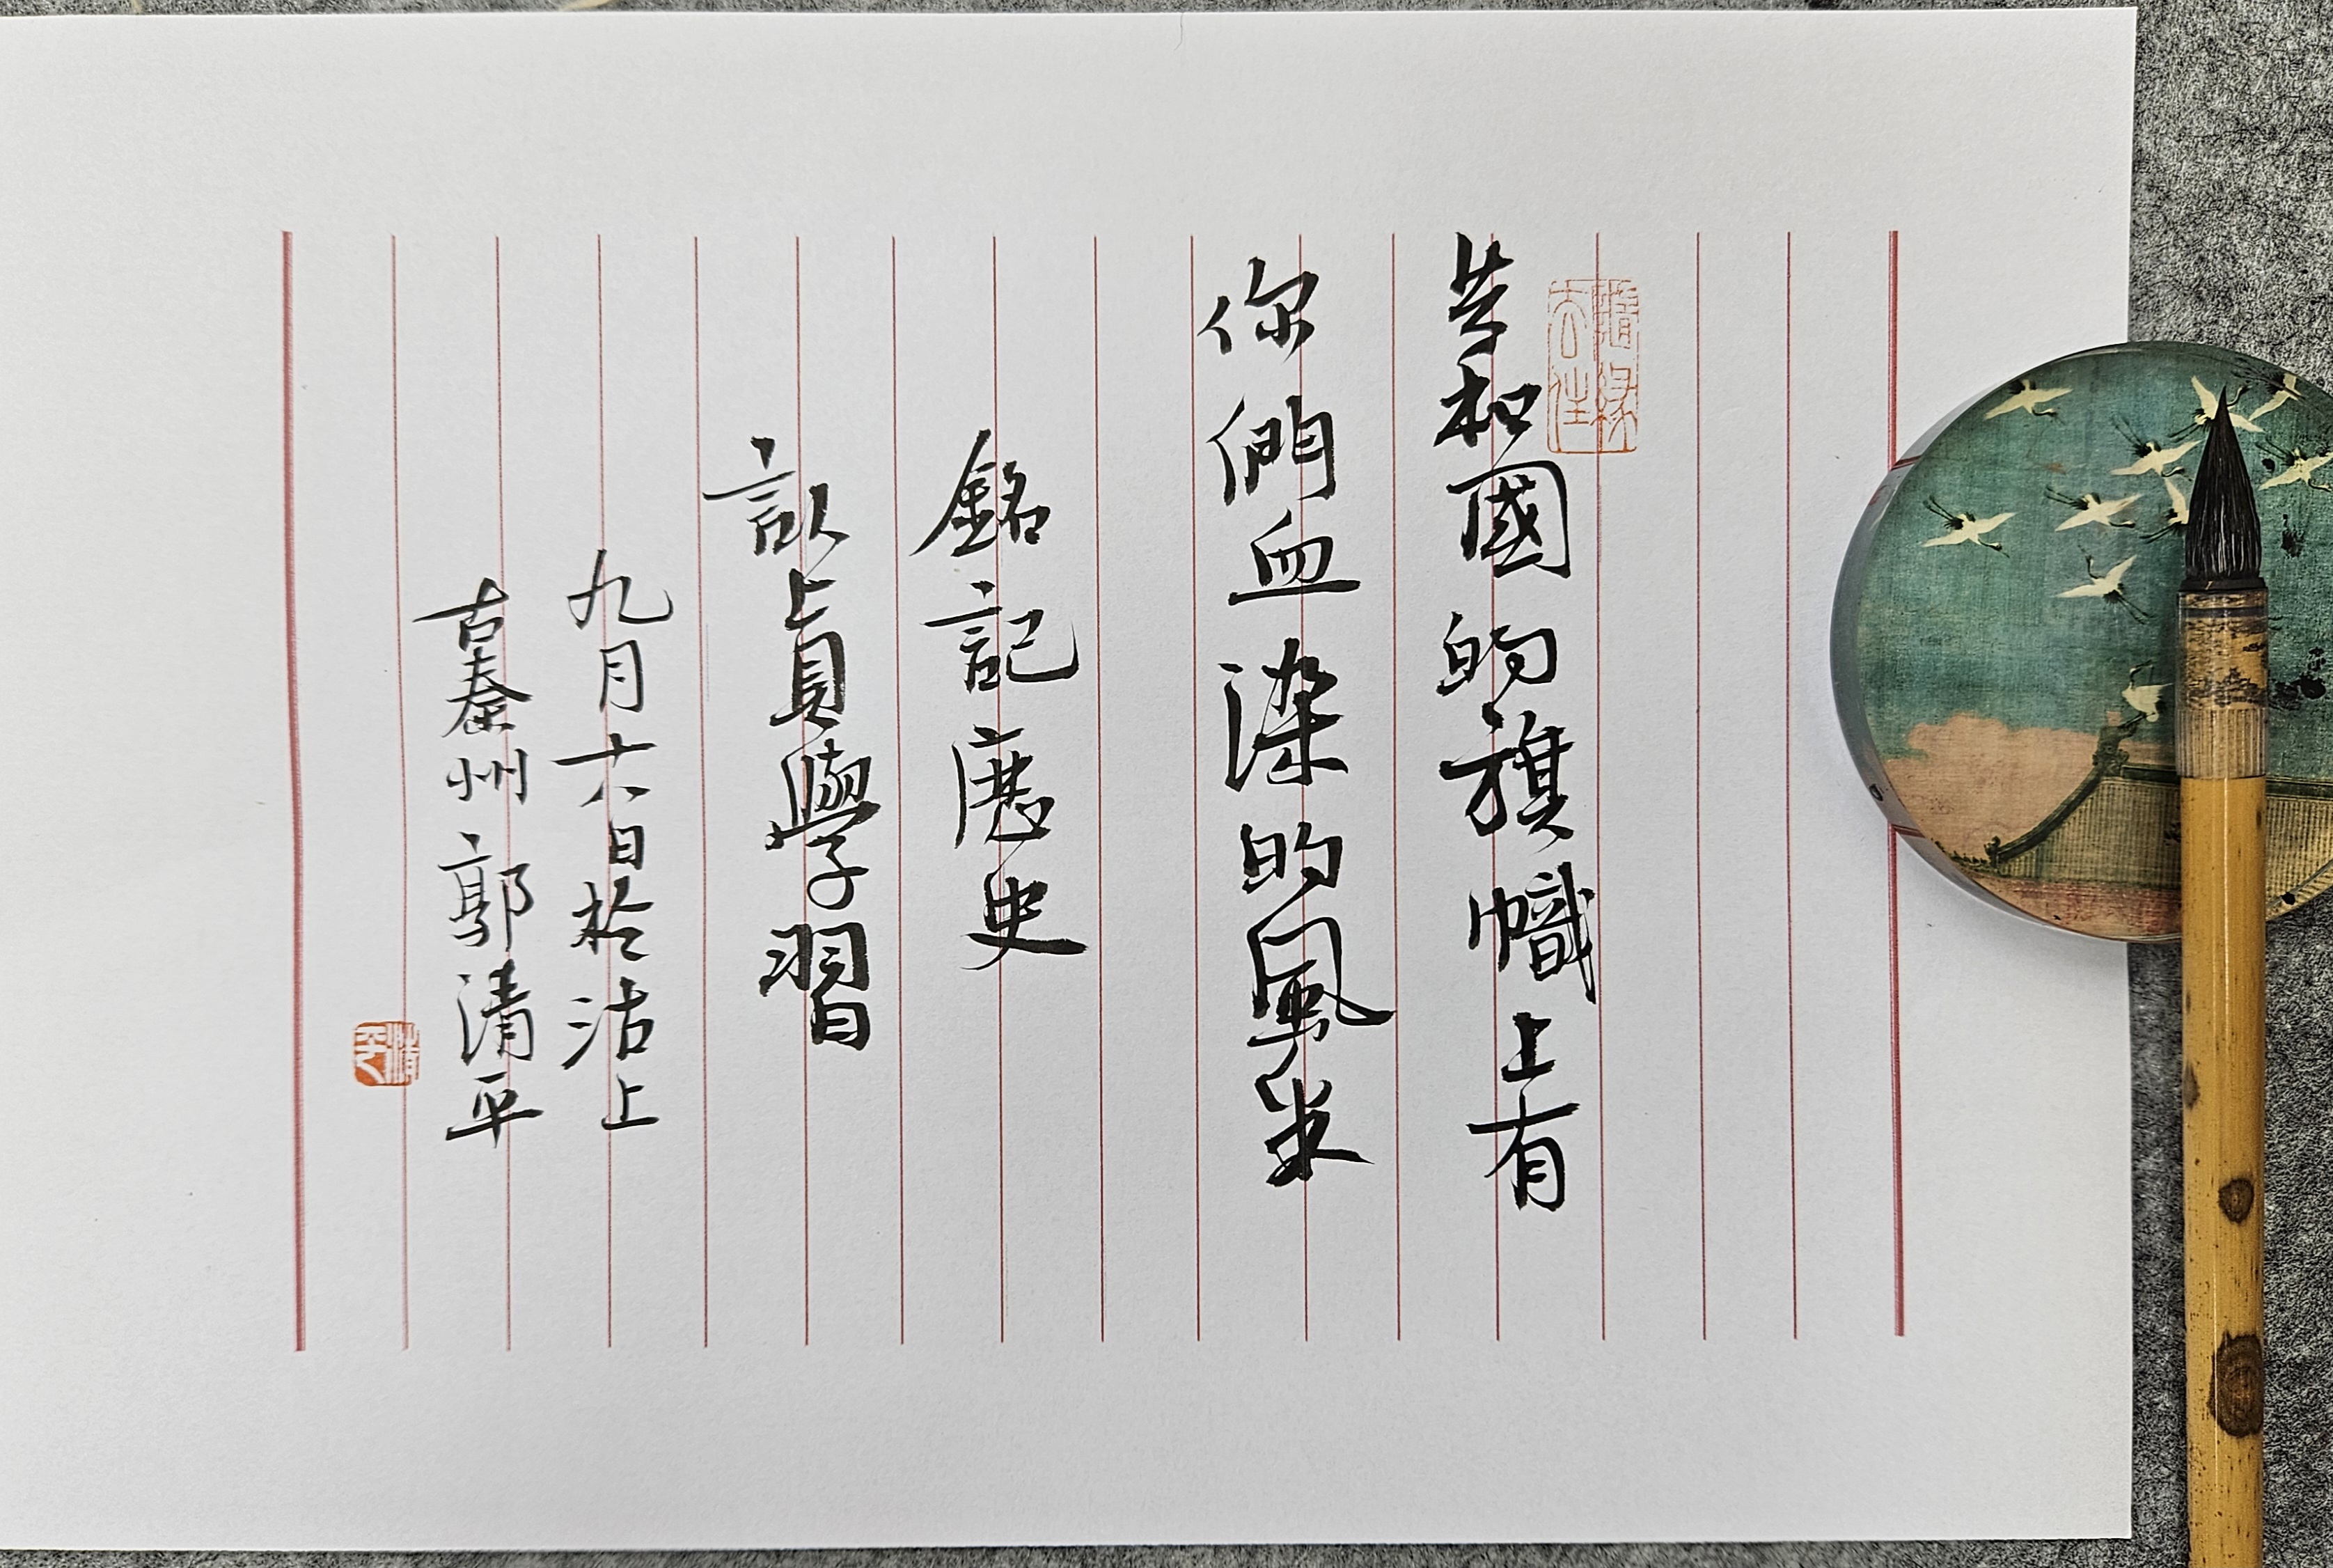 共和國的旗幟上有
你們血染的風采
銘記歷史
認真學習
九月十八日於沽上
古秦州郭清平
清平